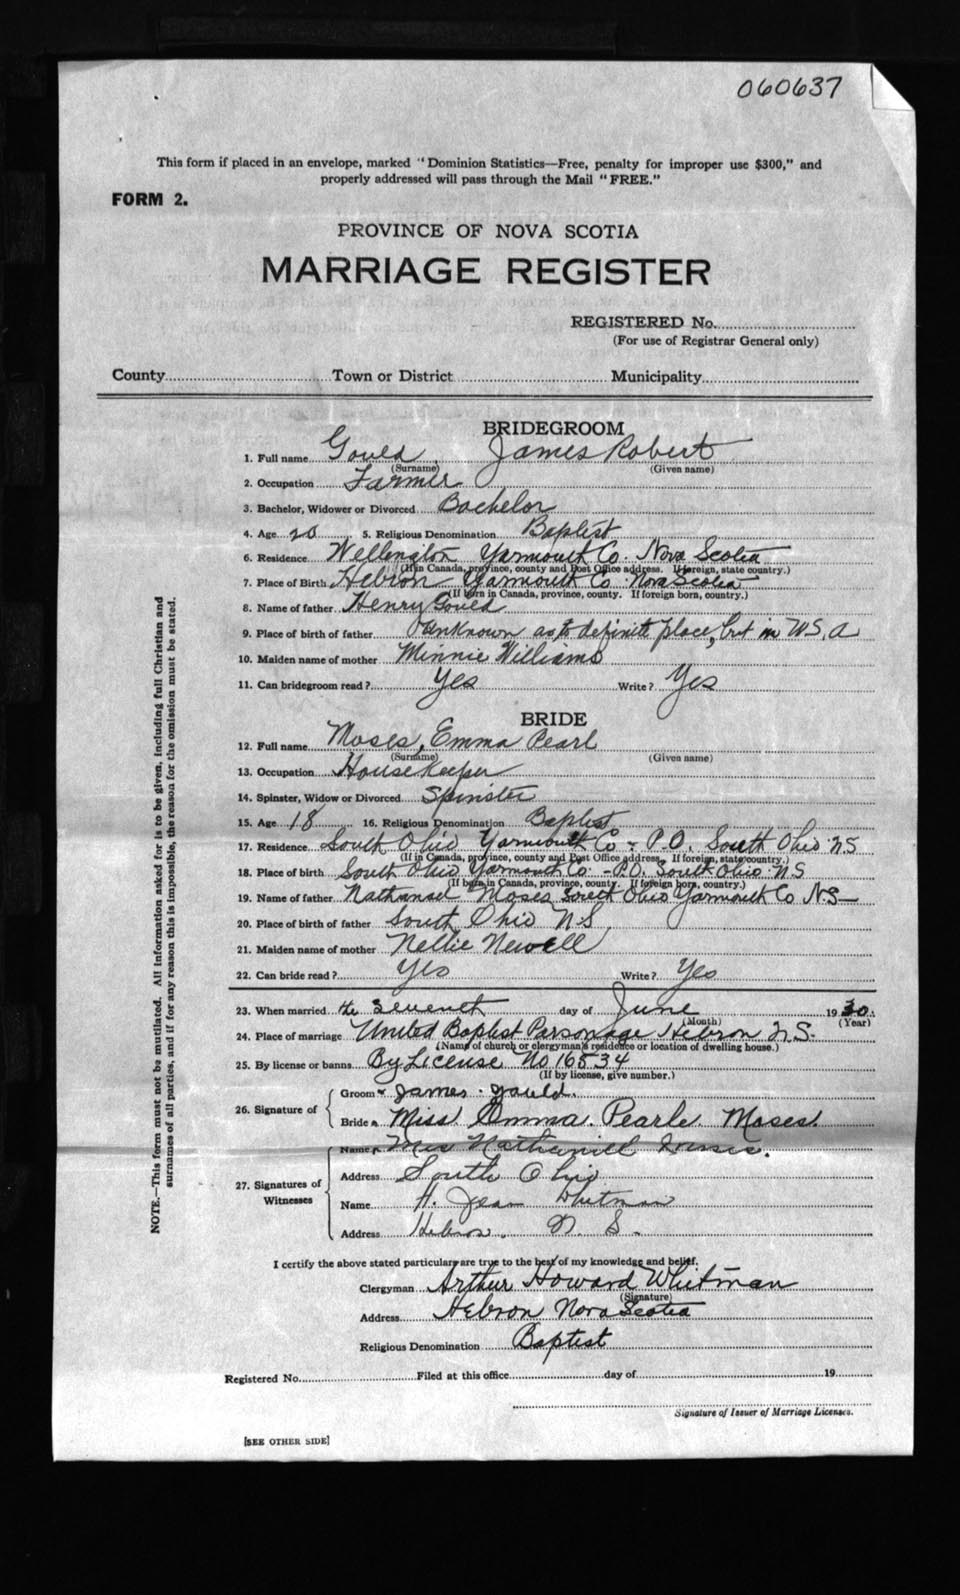 060637
This form if placed in an envelope, marked "Dominion Statistics—Free, penalty for improper use $300," and
properly addressed will pass through the Mail "FREE."
FORM 2.
PROVINCE OF NOVA SCOTIA
MARRIAGE REGISTER
REGISTERED No.
(For use of Registrar General only)
County Town or District Municipality
BRIDEGROOM
1. Full name Gould James Robert
(Surname) (Given name)
2. Occupation Farmer
3. Bachelor, Widower or Divorced Bachelor
4. Age 20 5. Religious Denomination Baptist
6. Residence Wellington Yarmouth Co. Nova Scotia
(If in Canada, province, county and Post Office address. If foreign, state country.)
7. Place of Birth Hebron Yarmouth Co. Nova Scotia
(If born in Canada, province, county. If foreign born, country.)
8. Name of father Henry Gould
9. Place of birth of father Unknown as to definite place, but in U.S.A
10. Maiden name of mother Minnie Williams
11. Can bridegroom read? Yes Write? Yes
BRIDE
12. Full name Moses, Emma Pearl
(Surname) (Given name)
13. Occupation Housekeeper
14. Spinster, Widow or Divorced Spinster
15. Age 18 16. Religious Denomination Baptist
17. Residence South Ohio Yarmouth Co - P.O. South Ohio NS
(If in Canada, province, county and Post Office address. If foreign, state country.)
18. Place of birth South Ohio Yarmouth Co. - P.O. South Ohio NS
(If born in Canada, province, county. If foreign born, country.)
19. Name of father Nathanael Moses South Ohio Yarmouth Co N.S—
20. Place of birth of father South Ohio N.S,
21. Maiden name of mother Nellie Newell
22. Can bride read? Yes Write? Yes
23. When married the Seventh day of June 1930.
(Month) (Year)
24. Place of marriage United Baptist Parsonage Hebron N.S.
(Name of church or clergyman's residence or location of dwelling house.)
25. By license or banns By License No 16534
(If by license, give number.)
26. Signature of
Groom James Gould.
Bride Miss Emma. Pearle Moses.
27. Signatures of Witnesses
Name Mrs Nathaniell
Address South Ohio
Name H. Jean Whitman
Address Hebron, N. S.
I certify the above stated particulars are true to the best of my knowledge and belief.
Clergyman Arthur Howard Whitman
(Signature)
Address Hebron Nova Scotia
Religious Denomination Baptist
Registered No. Filed at this office day of 19
Signature of Issuer of Marriage Licenses.
[SEE OTHER SIDE]
NOTE.—This form must not be mutilated. All information asked for is to be given, including full Christian and
surnames of all parties, and if for any reason this is impossible, the reason for the omission must be stated.